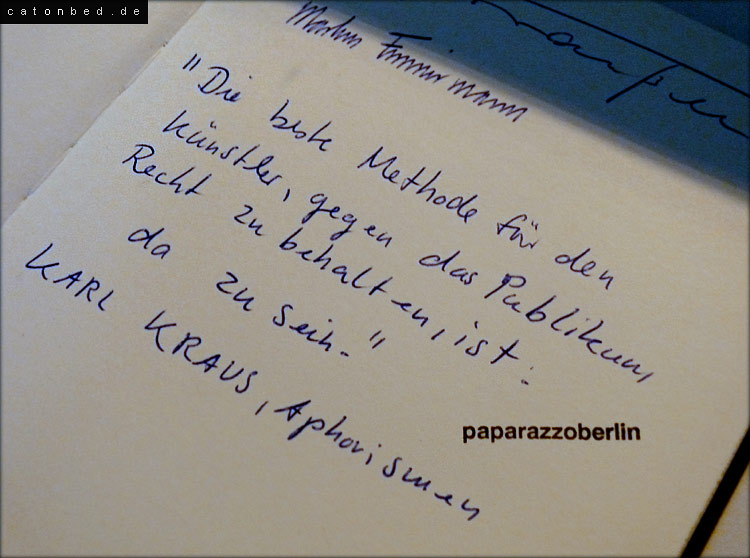 catonbed.de
"Die beste Methode für den
Künstler, gegen das Publikum
Recht zu behalten, ist:
da zu sein."
KARL KRAUS, Aphorismen
paparazzoberlin